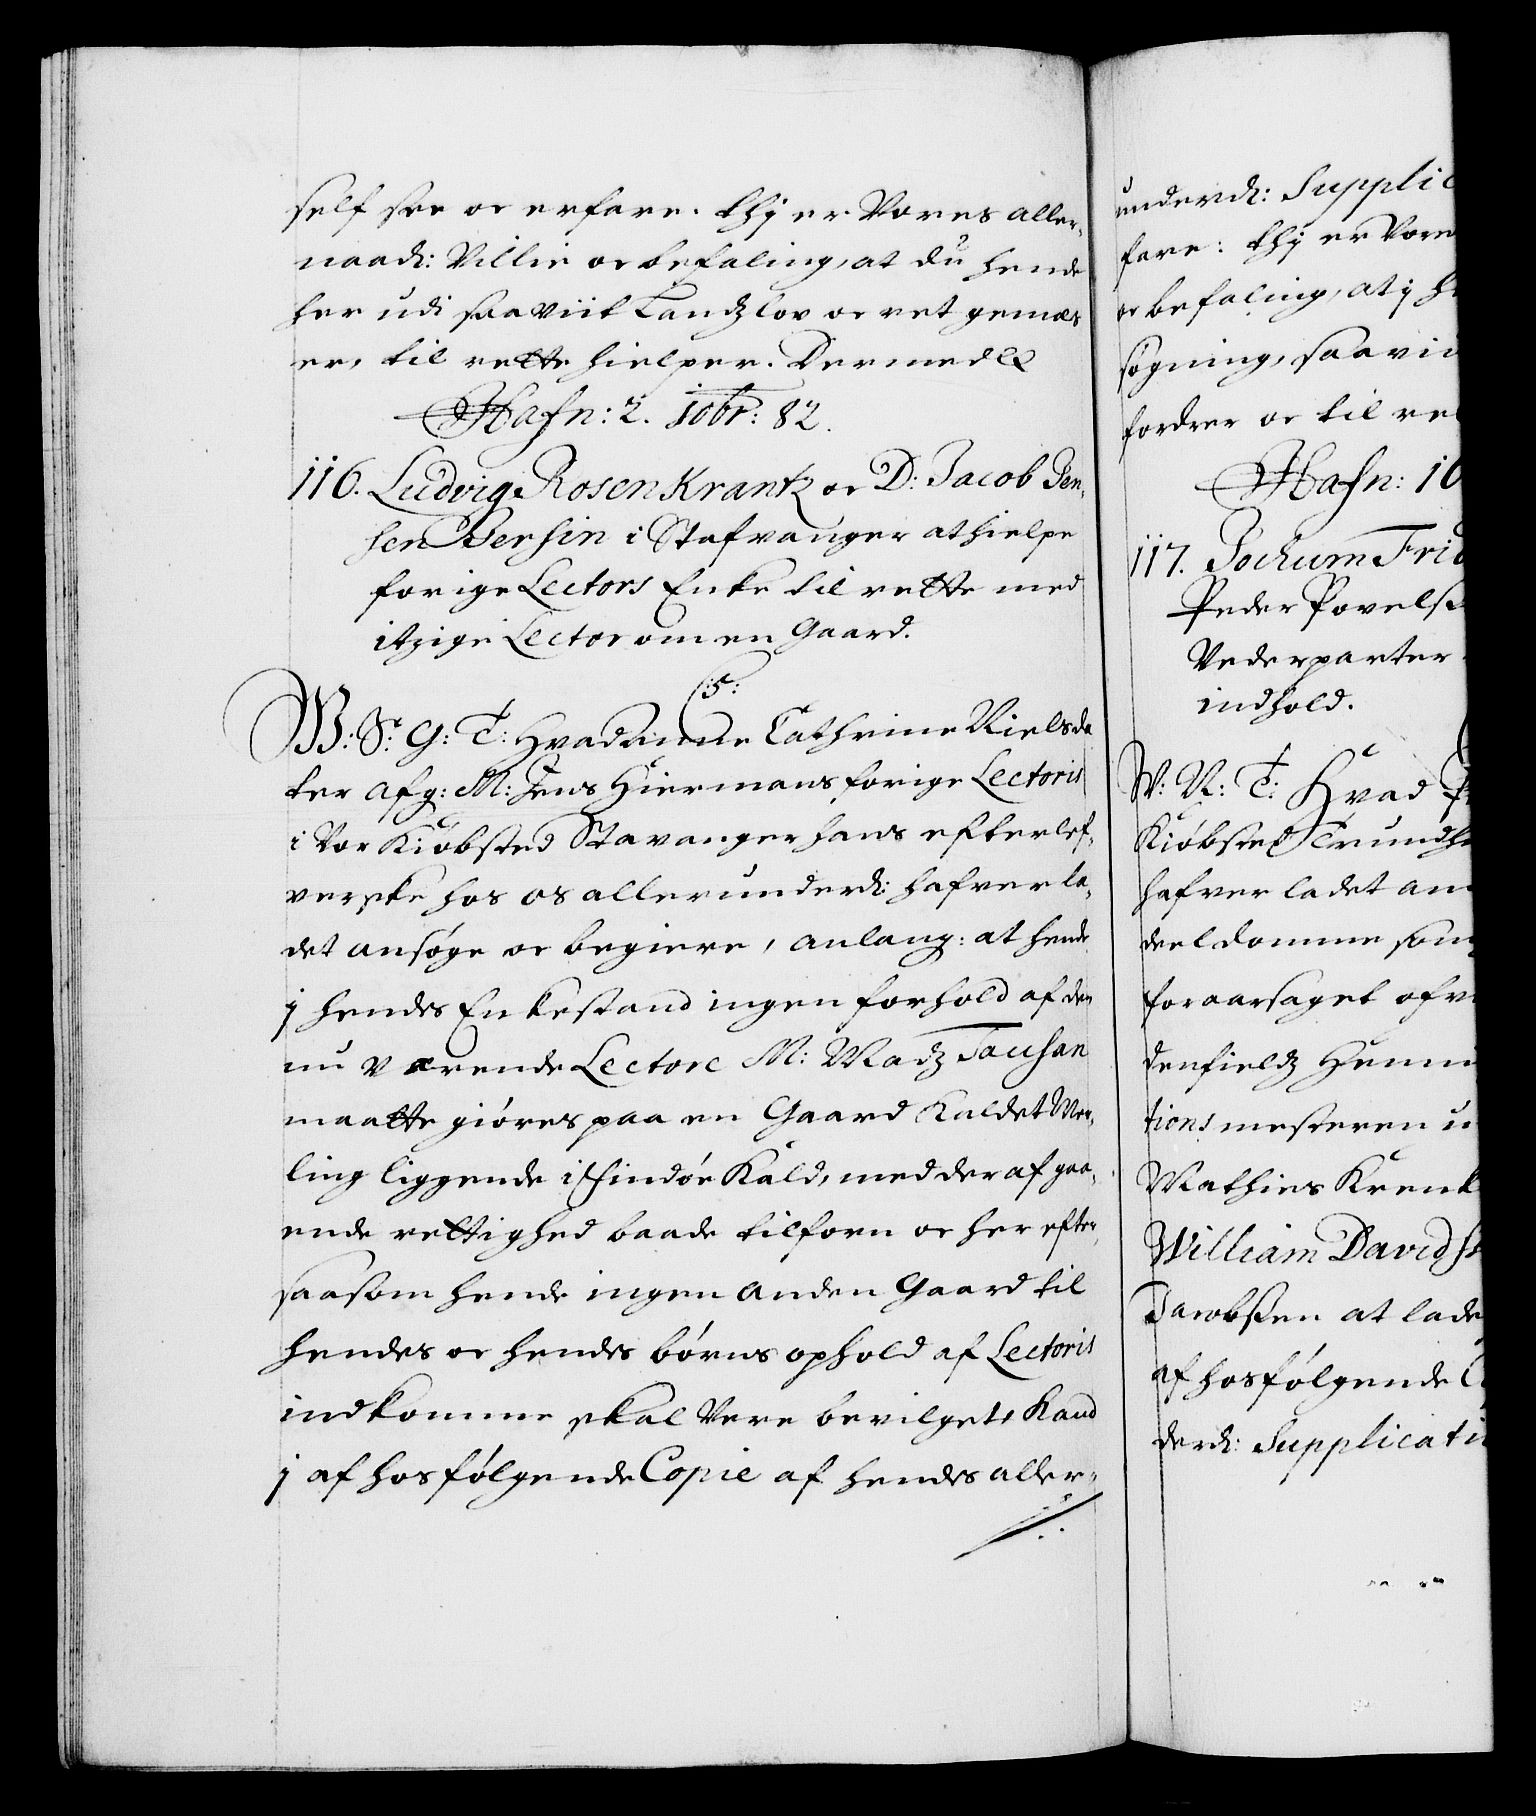 self see oc erfare. thj er Vores aller-
naadi: Villie oc befaling, at du hende
her udi saaviit Landzlov oc ret gemæs
er, til rette hielper. Dermed &
Hafn: 2. 10br: 82.
116. Ludvig Rosenkrantz oc D: Jacob Jen-
sen Jersin i Stafvanger at hielpe
forige Lectors Enke til rette med
itzige Lector om en Gaard.
:5:
W: S: G: T: Hvad Cathrine Nielsda-
ter afg: M: Jens Hiermans forige Lectoris
i Vor Kiøbsted Stavanger hans efterlef-
verske hos os allerunderdi: hafver la-
det ansøge oc begiere, anlang: at hende
j hendes Enkestand ingen forhold af den
nu værende Lectore M: Madz Tausan
maatte giøres paa en Gaard Kaldet Mer-
ling liggende i Findøe Kald, med deraf gaa-
ende rettighed baade tilforn oc her efter,
saasom hende ingen anden Gaard til
hendes oc hendes børns ophold af Lectoris
indkomme skal Vere bevilget, Kand
j af hosfølgende Copie af hendes aller-
underdi: Supplic
fare: thj er Vore
oc befaling, at j h
søgning, saavi
fordrer oc til re
Hafn: 16
117. Jochum Frid
Peder Povels
Vederparter
indhold.
W: V: T: Hvad P
Kiøbsted Trundh
hafver ladet an
deel domme som
foraarsaget ofv
denfieldz Henni
tions mesteren u
Mathies Krenk
William Davids
Jacobsen at lade
af hosfølgende C
derdi: Supplicati